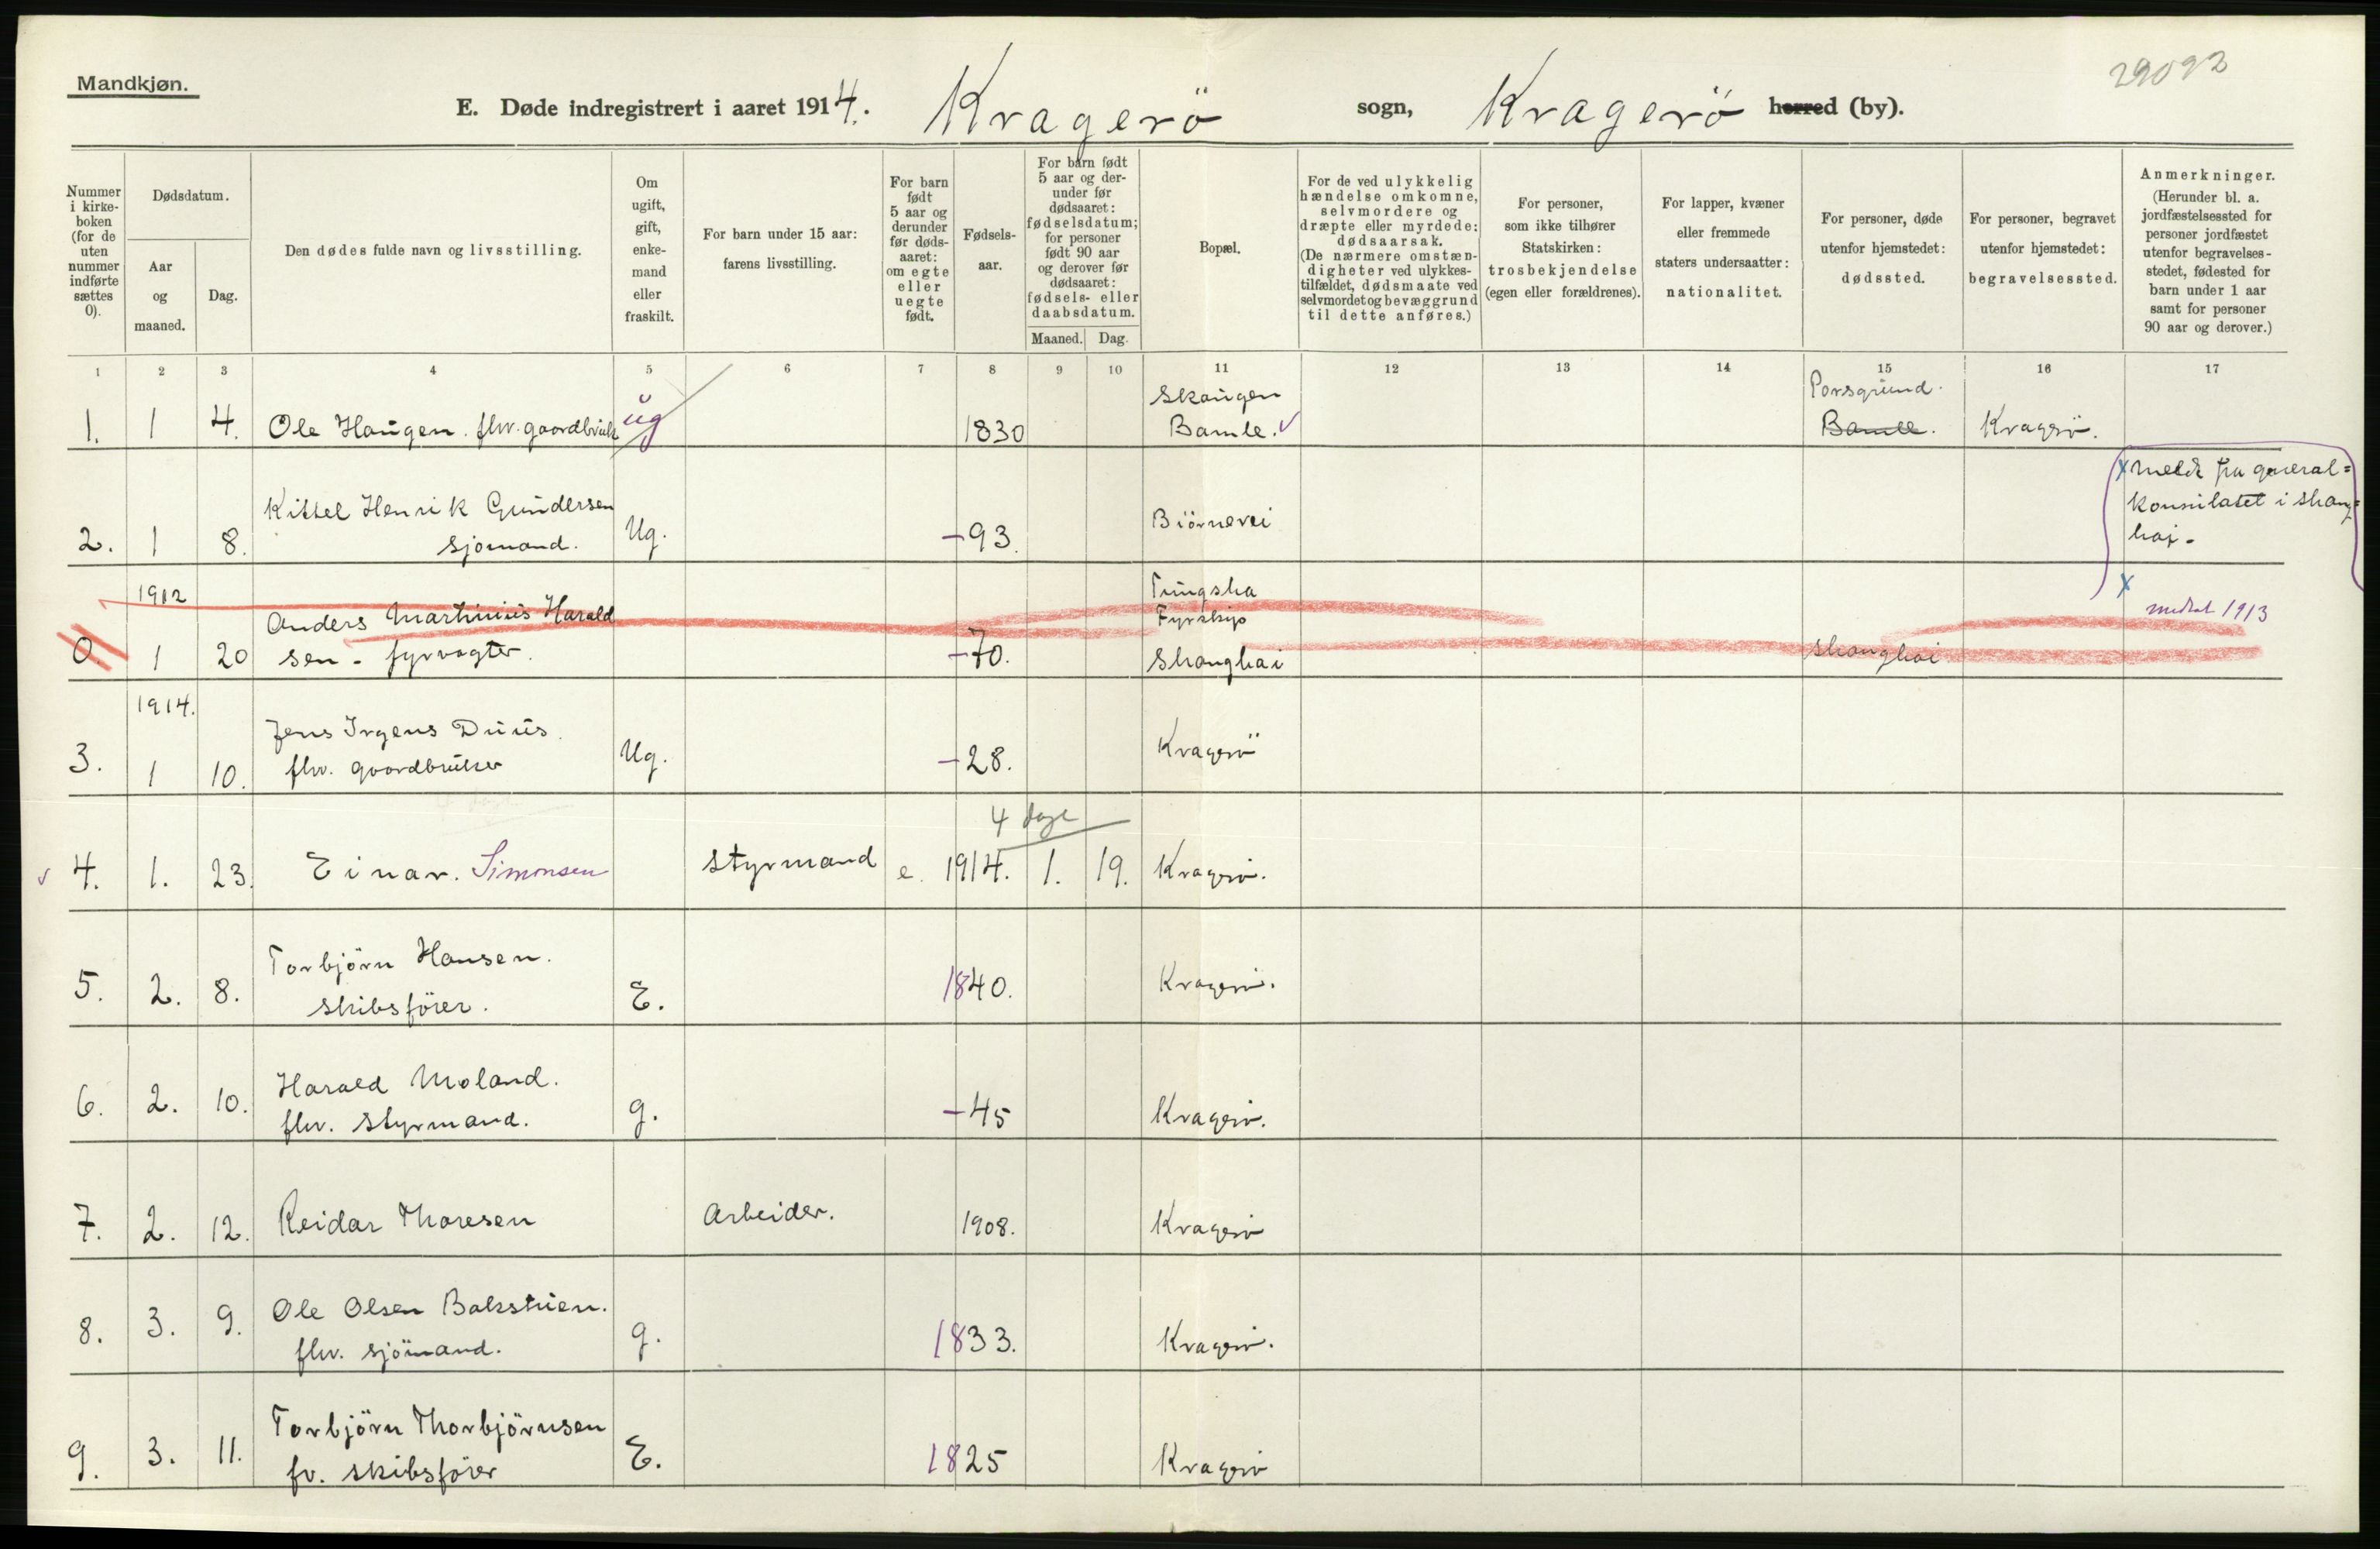 Mandkjøn.
29092
E. Døde indregistrert i aaret 1914. Kragerö sogn, Kragerö herred (by).
Nummer i kirke- boken (for de uten nummer indførte sættes 0).
Dødsdatum.
Aar og maaned.
Dag.
Den dødes fulde navn og livsstilling.
Om ugift, gift, enke- mand eller fraskilt.
For barn under 15 aar: farens livsstilling.
For barn født 5 aar og derunder før døds- aaret: om egte eller uegte født.
Fødsels- aar.
For barn født 5 aar og der- under før dødsaaret: fødselsdatum; for personer født 90 aar og derover før dødsaaret: fødsels- eller daabsdatum.
Maaned. Dag.
Bopæl.
For de ved ulykkelig hændelse omkomne, selvmordere og dræpte eller myrdede: dødsaarsak. (De nærmere omstæn- digheter ved ulykkes- tilfældet, dødsmaate ved selvmordet og bevæggrund til dette anføres.)
For personer, som ikke tilhører Statskirken: trosbekjendelse (egen eller forældrenes).
For lapper, kvæner eller fremmede staters undersaatter: nationalitet.
For personer, døde utenfor hjemstedet: dødssted.
For personer, begravet utenfor hjemstedet: begravelsessted.
Anmerkninger. (Herunder bl. a. jordfæstelsessted for personer jordfæstet utenfor begravelses- stedet, fødested for barn under 1 aar samt for personer 90 aar og derover.)
1 2 3 4 5 6 7 8 9 10 11 12 13 14 15 16 17
Skaugen Porsgrund.
1. 1 4. Ole Haugen. fhv. gaardbruk ug 1830 Bamle. Bamle. Kragerö.
Kittel Henrik Gundersen
2. 1 8. sjømand. Ug. -93. Biörnevei
x meldt fra general=
konsulatet i Shang=
hai.
1912 Tungsha x
Anders Martinius Harald Fyrskip medtat 1913
0. 1 20 sen - fyrvagter. -70. Shanghai Shanghai
1914.
Jens Irgens Duus.
3. 1 10. fhv. gaardbruker Ug. -28. Kragerö
4 dage
4. 1. 23. Einar. Simonsen styrmand e. 1914. 1. 19. Kragerö.
Torbjörn Hansen.
5. 2. 8. skibsförer. E. 1840. Kragerö.
Harald Moland.
6. 2. 10. fhv. styrmand. g. -45 Kragerö.
7. 2. 12. Reidar Thoresen Arbeider. 1908. Kragerö
Ole Olsen Bakstrien.
8. 3. 9. fhv. sjömand. g. 1833. Kragerö.
Torbjörn Thorbjörnsen
9. 3. 11. fv. skibsförer E. 1825 Kragerö